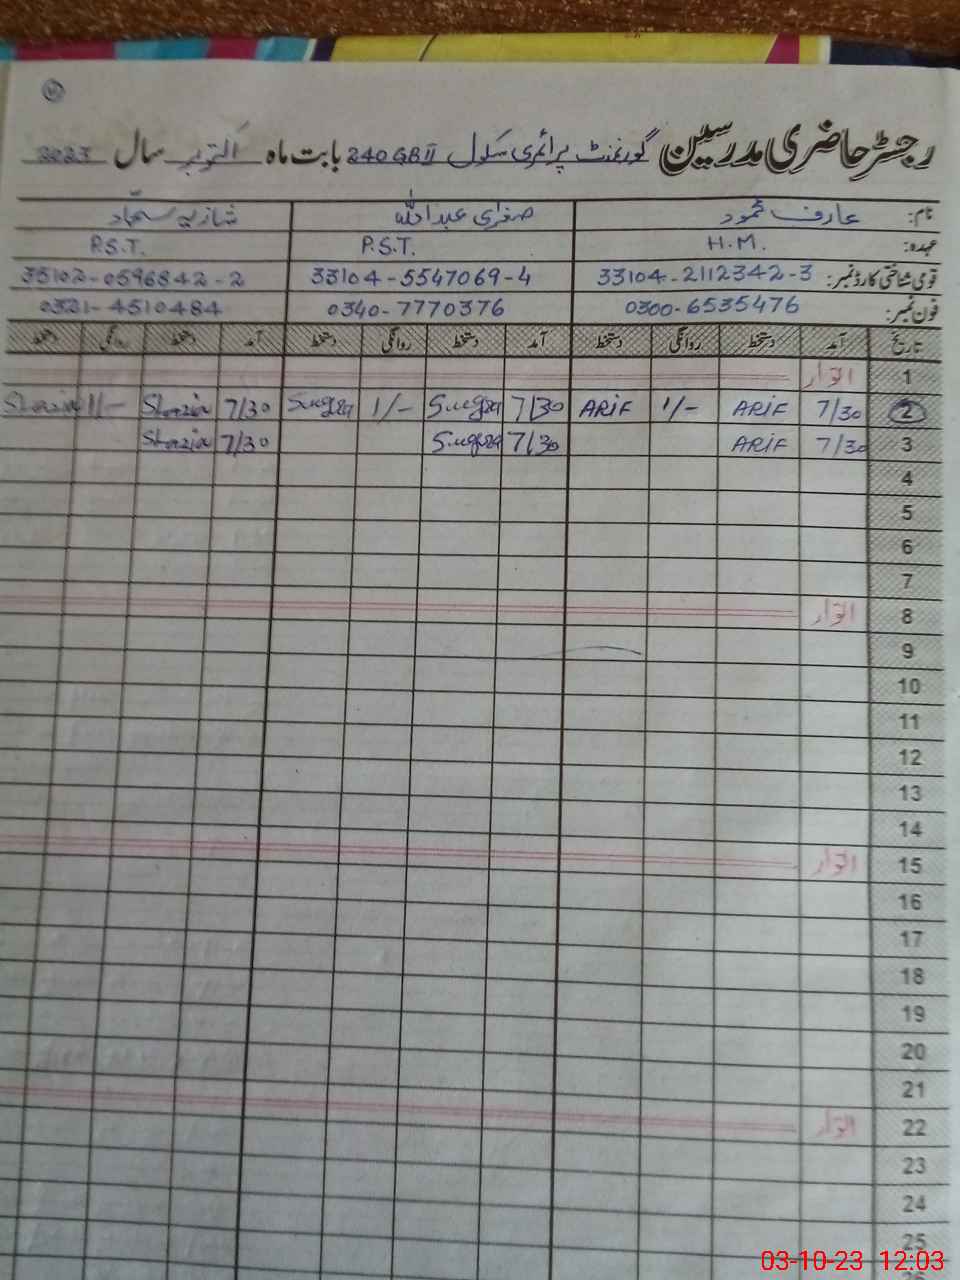 رجسٹر حاضری مدرسین گورنمنٹ پرائمری سکول 240 GB II بابت ماہ اکتوبر سال 2023
نام: عارف محمود صغراں عبداللہ شازیہ سجاد
عہدہ: H.M. P.S.T. P.S.T.
قومی شناختی کارڈ نمبر: 33104-2112342-3 33104-5547069-4 33102-0596842-2
فون نمبر: 0300-6535476 0340-7770376 0321-4510484
تاریخ آمد دستخط روانگی دستخط آمد دستخط روانگی دستخط آمد دستخط روانگی دستخط
1 اتوار
2 7/30 ARIF 1/- ARIF 7/30 Sugra 1/- Sugra 7/30 Shazia 1/- Shazia
3 7/30 ARIF 7/30 Sugra 7/30 Shazia
4
5
6
7
8 اتوار
9
10
11
12
13
14
15 اتوار
16
17
18
19
20
21
22 اتوار
23
24
25
03-10-23 12:03